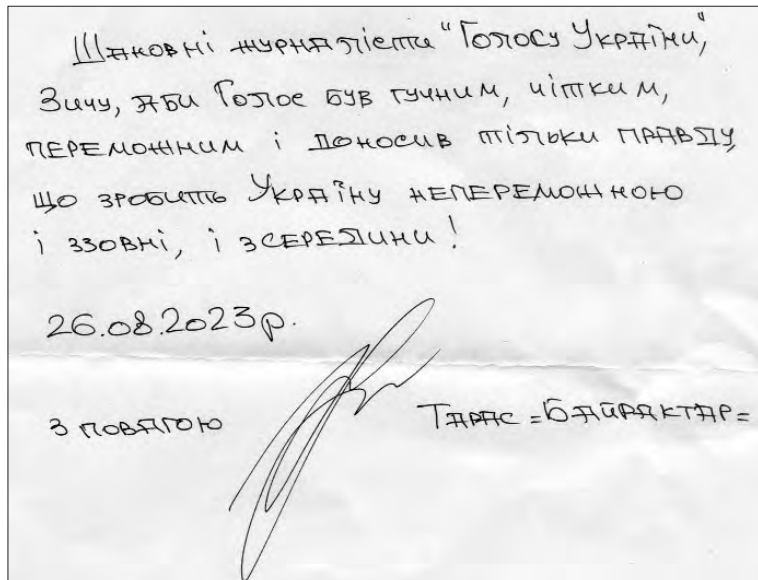 Шановні журналісти "Голосу України",
Зичу, аби Голос був гучним, чітким,
переможним і доносив тільки правду,
що зробить Україну непереможною
і ззовні, і зсередини!
26.08.2023р.
З повагою Тарас =Байрактар=